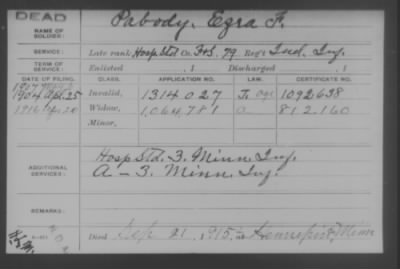 DEAD
NAME OF SOLDIER: Pabody, Ezra F.
SERVICE: Late rank Hosp Std Co. F&S. 79 Reg't Ind. Inf.
TERM OF SERVICE: Enlisted , 1 Discharged , 1
DATE OF FILING. CLASS. APPLICATION NO. LAW. CERTIFICATE NO.
1907
1904 Apr. 25 Invalid, 1314027 1092638
1916 Widow, 1,064,781 812,160
Minor,
ADDITIONAL SERVICES: Hosp Std. 3. Minn. Inf.
A - 3. Minn. Inf.
REMARKS:
Died Sep 21, 1915, at Minn